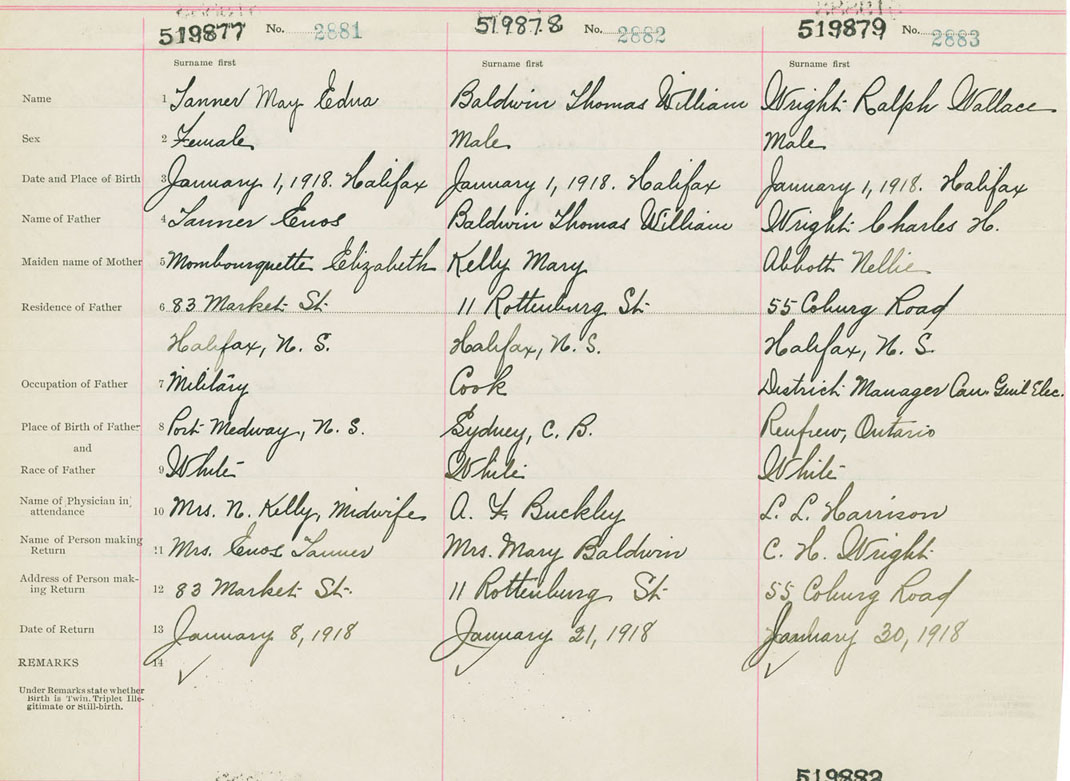 519877 No. 2881 519878 No. 2882 519879 No. 2883
Surname first Surname first Surname first
Name 1 Tanner May Edna Baldwin Thomas William Wright Ralph Wallace
Sex 2 Female Male Male
Date and Place of Birth 3 January 1, 1918. Halifax January 1, 1918. Halifax January 1, 1918. Halifax
Name of Father 4 Tanner Enos Baldwin Thomas William Wright Charles H.
Maiden name of Mother 5 Mombourquette Elizabeth Kelly Mary Abbott Nellie
Residence of Father 6 83 Market St. 11 Rottenburg St. 55 Coburg Road
Halifax, N. S. Halifax, N. S. Halifax, N. S.
Occupation of Father 7 Military Cook District Manager Can. Genl Elec.
Place of Birth of Father 8 Port Medway, N. S. Sydney, C. B. Renfrew, Ontario
and
Race of Father 9 White White White
Name of Physician in
attendance 10 Mrs. N. Kelly, Midwife A. F. Buckley L. L. Harrison
Name of Person making
Return 11 Mrs. Enos Tanner Mrs. Mary Baldwin C. H. Wright
Address of Person mak-
ing Return 12 83 Market St. 11 Rottenburg St. 55 Coburg Road
Date of Return 13 January 8, 1918 January 21, 1918 January 30, 1918
REMARKS 14
Under Remarks state whether
Birth is Twin. Triplet Ille-
gitimate or Still-birth.
519882